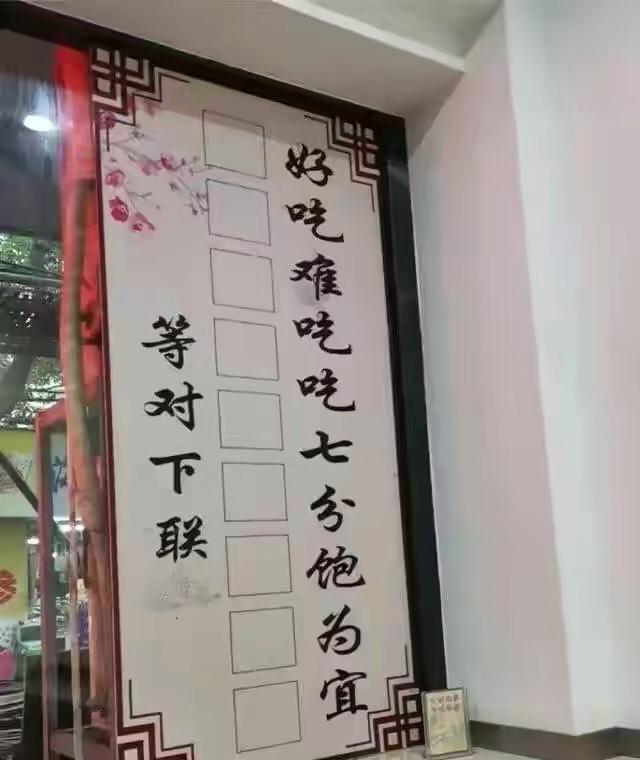 好吃难吃吃七分饱为宜
等对下联